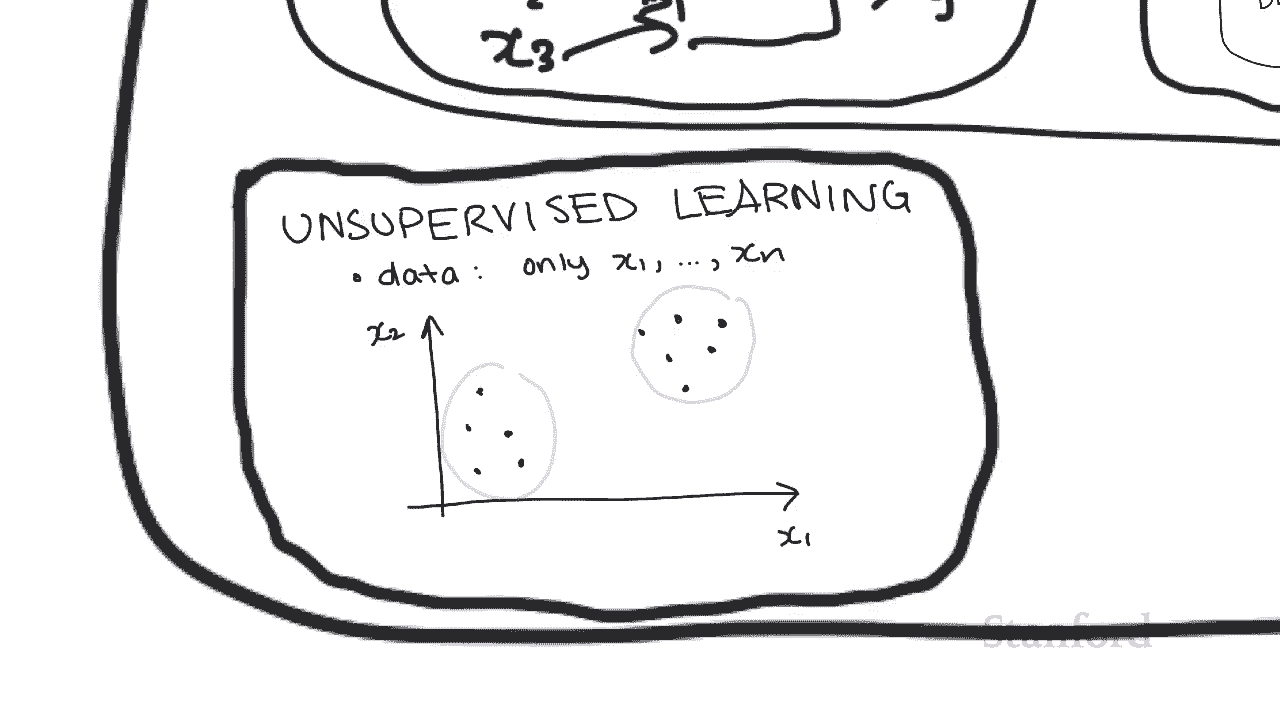 x3
UNSUPERVISED LEARNING
• data: only x1, ..., xn
x2
x1
Stanford